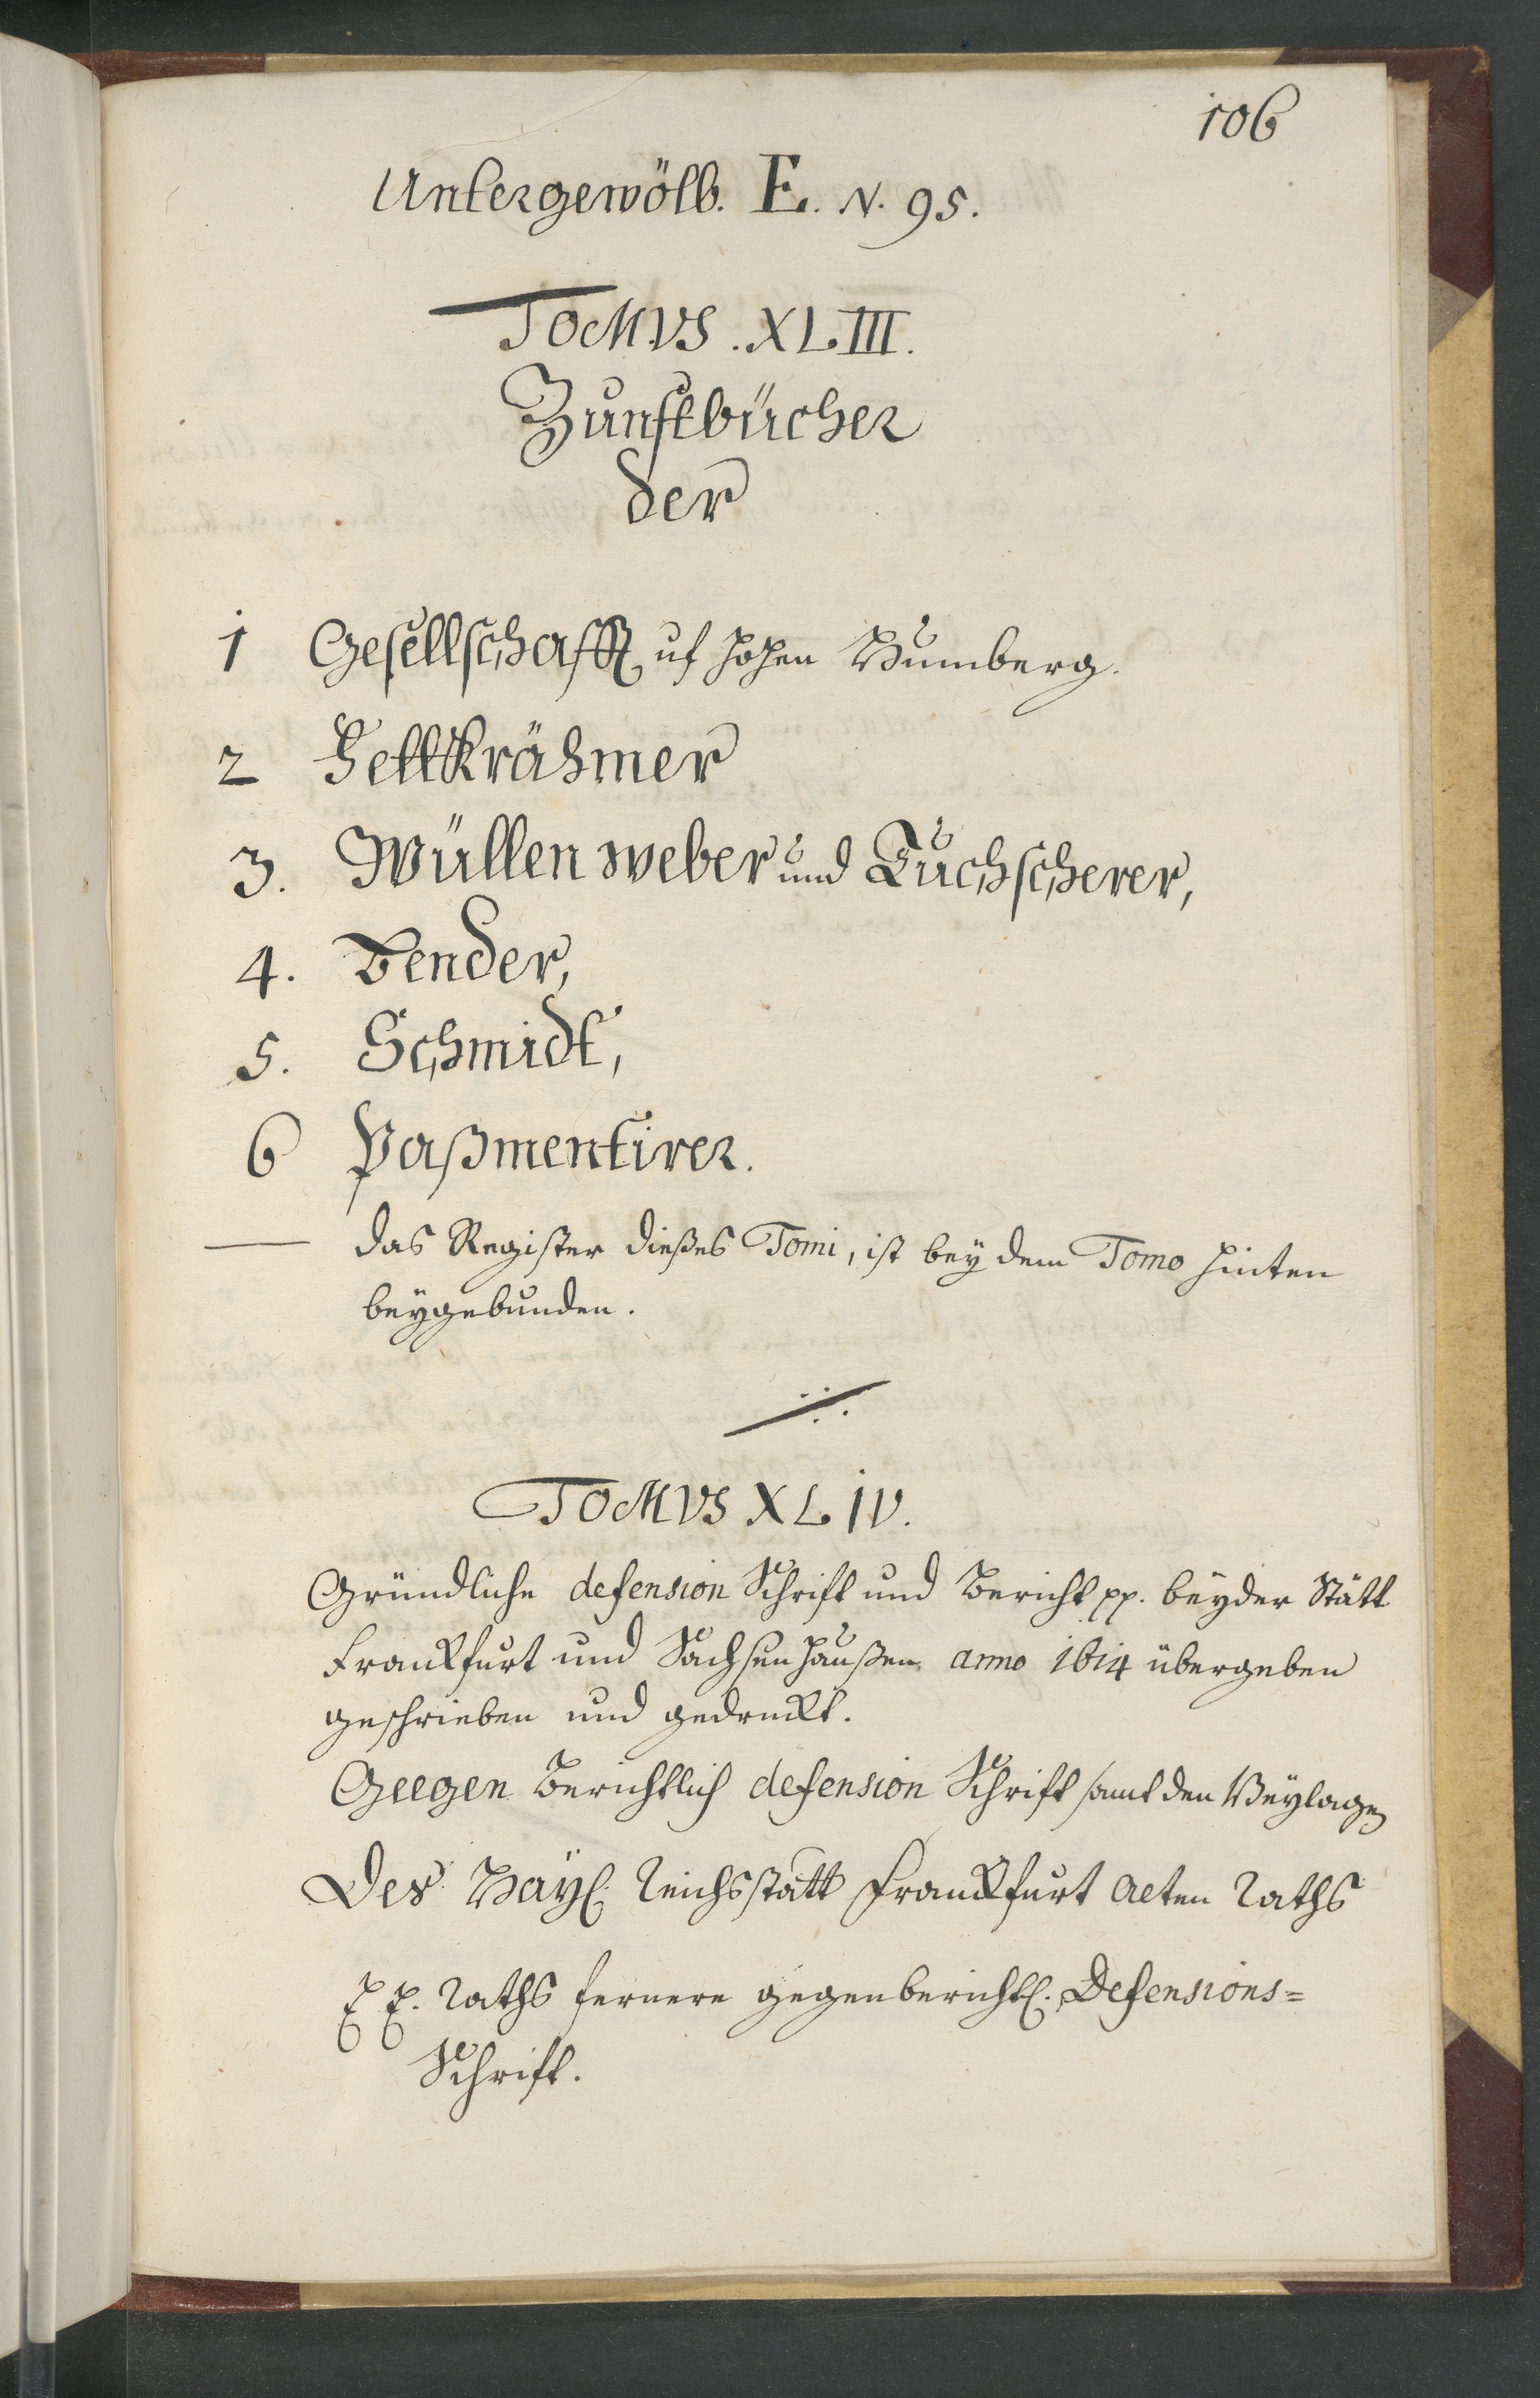 106
Untergewölb. E. N. 95.
TOMVS. XLIII.
Zunftbücher
der
1 Gesellschafft uf hohen
2 Fettkrähmer
3. Wüllen weber und Tuchscherer,
4. Bender,
5. Schmidt,
6 Paßmentirer.
das Register dießes Tomi, ist bey dem Tomo hinten
beygebunden.
TOMVS XLIV.
Gründliche defension Schrift und Bericht pp. beyder Stätt
Franckfurt und Sachsenhaußen anno 1614 übergeben
geschrieben und gedruckt.
Geegen Berichtlich defension Schrift samt den Beylagen
Des Kayl. Reichsstatt Franckfurt alten Raths
E E. Raths fernere gegenberichtl. Defensions=
Schrift.